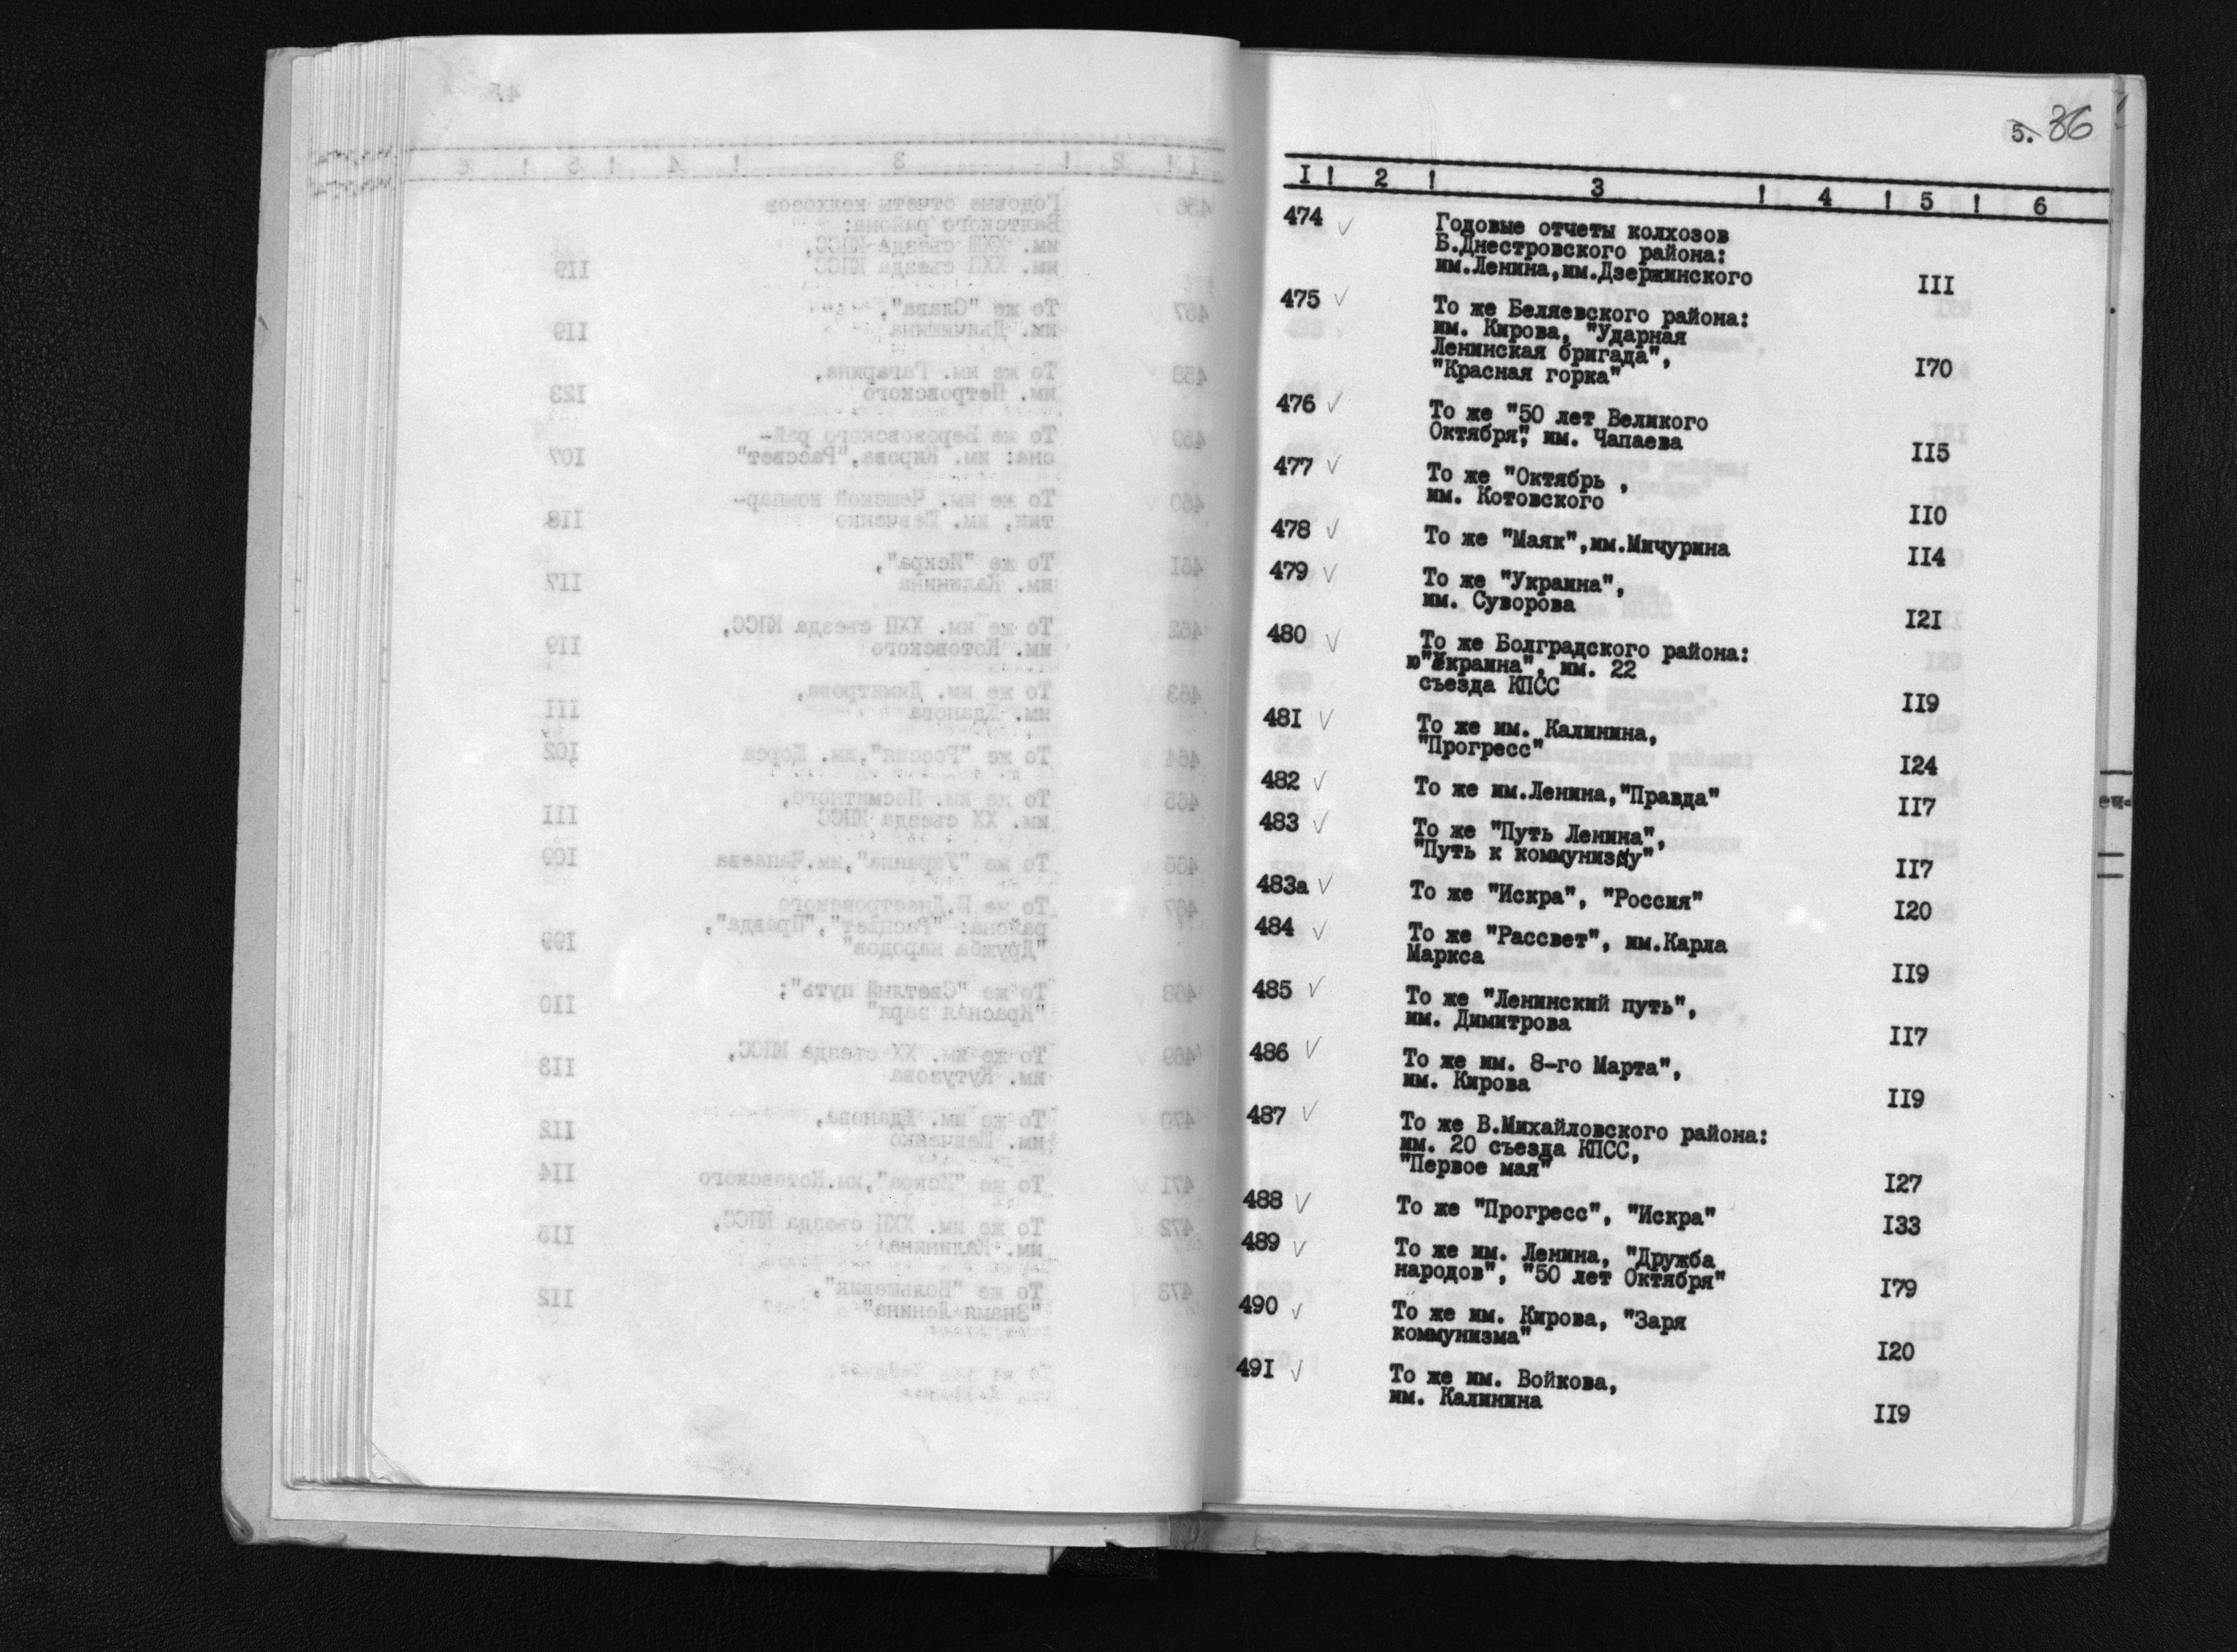 5. 36
I ! 2 ! 3 ! 4 ! 5 ! 6
474 ✓ Годовые отчеты колхозов
Б.Днестровского района:
им.Ленина,им.Дзержинского III
475 ✓ То же Беляевского района:
им. Кирова, "Ударная
Ленинская бригада",
"Красная горка" I70
476 ✓ То же "50 лет Великого
Октября", им. Чапаева II5
477 ✓ То же "Октябрь ,
им. Котовского II0
478 ✓ То же "Маяк",им.Мичурина II4
479 ✓ То же "Украина",
им. Суворова I2I
480 ✓ То же Болградского района:
ю"Украина", им. 22
съезда КПСС II9
48I ✓ То же им. Калинина,
"Прогресс" I24
482 ✓ То же им.Ленина,"Правда" II7
483 ✓ То же "Путь Ленина",
"Путь к коммунизму" II7
483а ✓ То же "Искра", "Россия" I20
484 ✓ То же "Рассвет", им.Карла
Маркса II9
485 ✓ То же "Ленинский путь",
им. Димитрова II7
486 ✓ То же им. 8-го Марта",
им. Кирова II9
487 ✓ То же В.Михайловского района:
им. 20 съезда КПСС,
"Первое мая" I27
488 ✓ То же "Прогресс", "Искра" I33
489 ✓ То же им. Ленина, "Дружба
народов", "50 лет Октября" I79
490 ✓ То же им. Кирова, "Заря
коммунизма" I20
49I ✓ То же им. Войкова,
им. Калинина II9